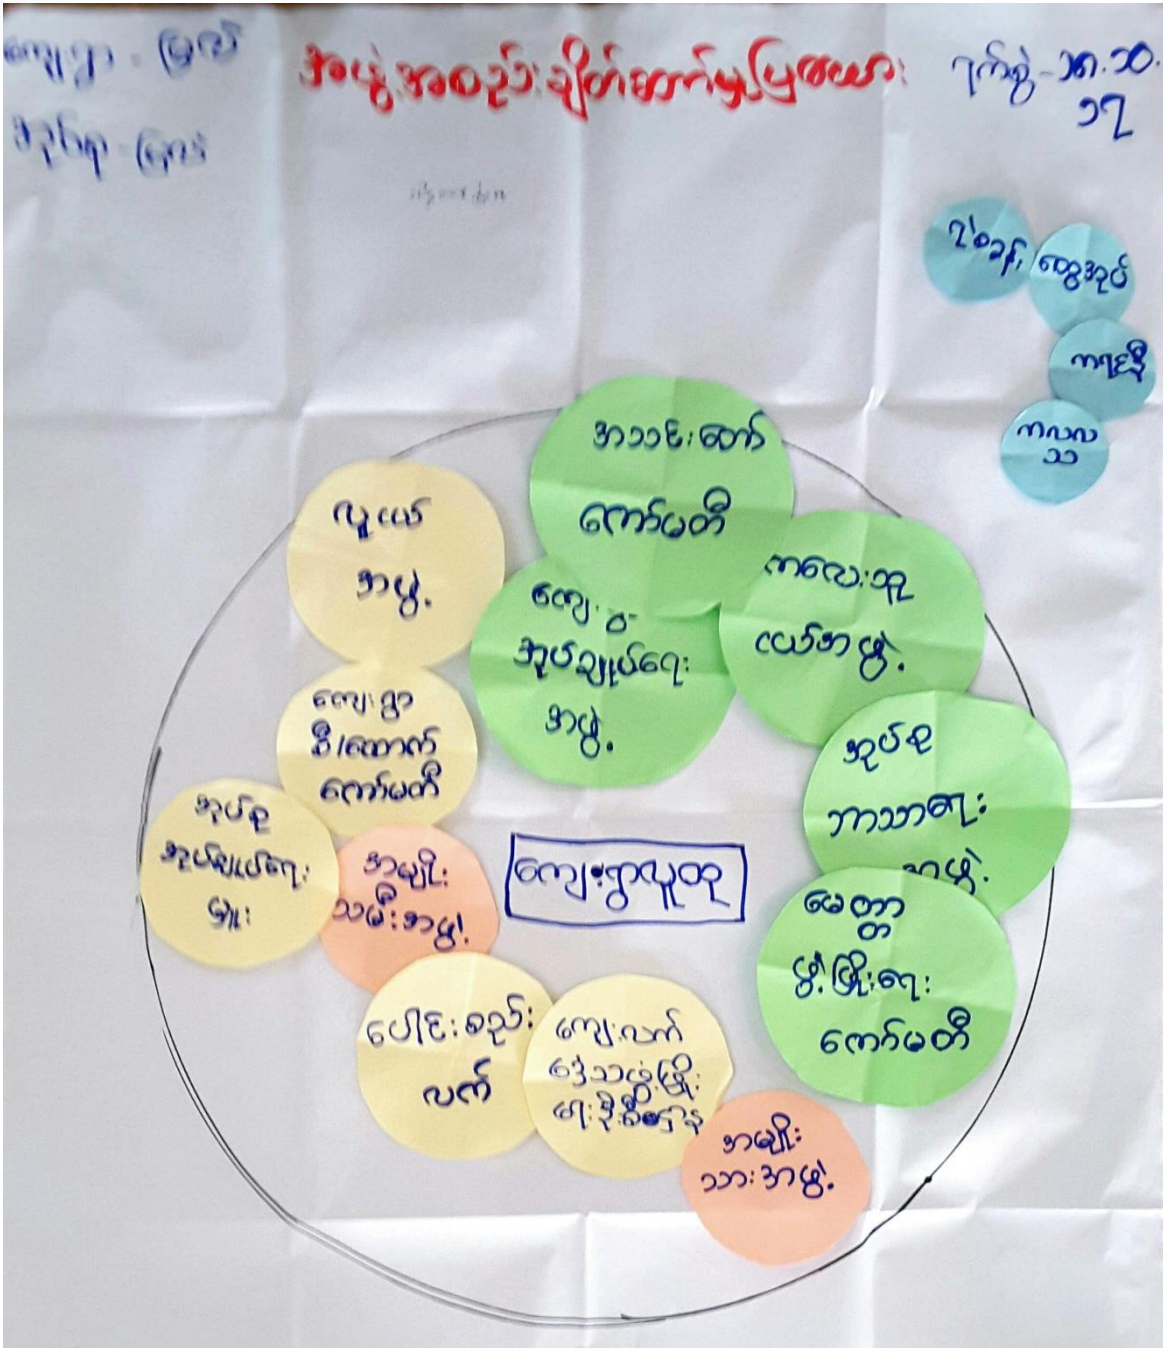 ကျေးရွာ -
အဖွဲ့အစည်းချိတ်ဆက်မှုပြဇယား
ရက်စွဲ -
၁၇
ရဲစခန်း
ထွေအုပ်
ကရင်နီ
ကလလ
သ
အသင်းတော်
ကော်မတီ
လူငယ်
အဖွဲ့
ကျေးရွာ
အုပ်ချုပ်ရေး
အဖွဲ့
ကလေးသူ
ငယ်အဖွဲ့
ကျေးရွာ
စီ/ထောက်
ကော်မတီ
အုပ်စု
ဘာသာရေး
အဖွဲ့
အုပ်စု
အုပ်ချုပ်ရေး
မှူး
အမျိုး
သမီးအဖွဲ့
ကျေးရွာလူထု
မေတ္တာ
ဖွံ့ဖြိုးရေး
ကော်မတီ
ပေါင်းစည်း
လက်
ကျေးလက်
ဒေသဖွံ့ဖြိုး
ရေးဦးစီးဌာန
အမျိုး
သားအဖွဲ့